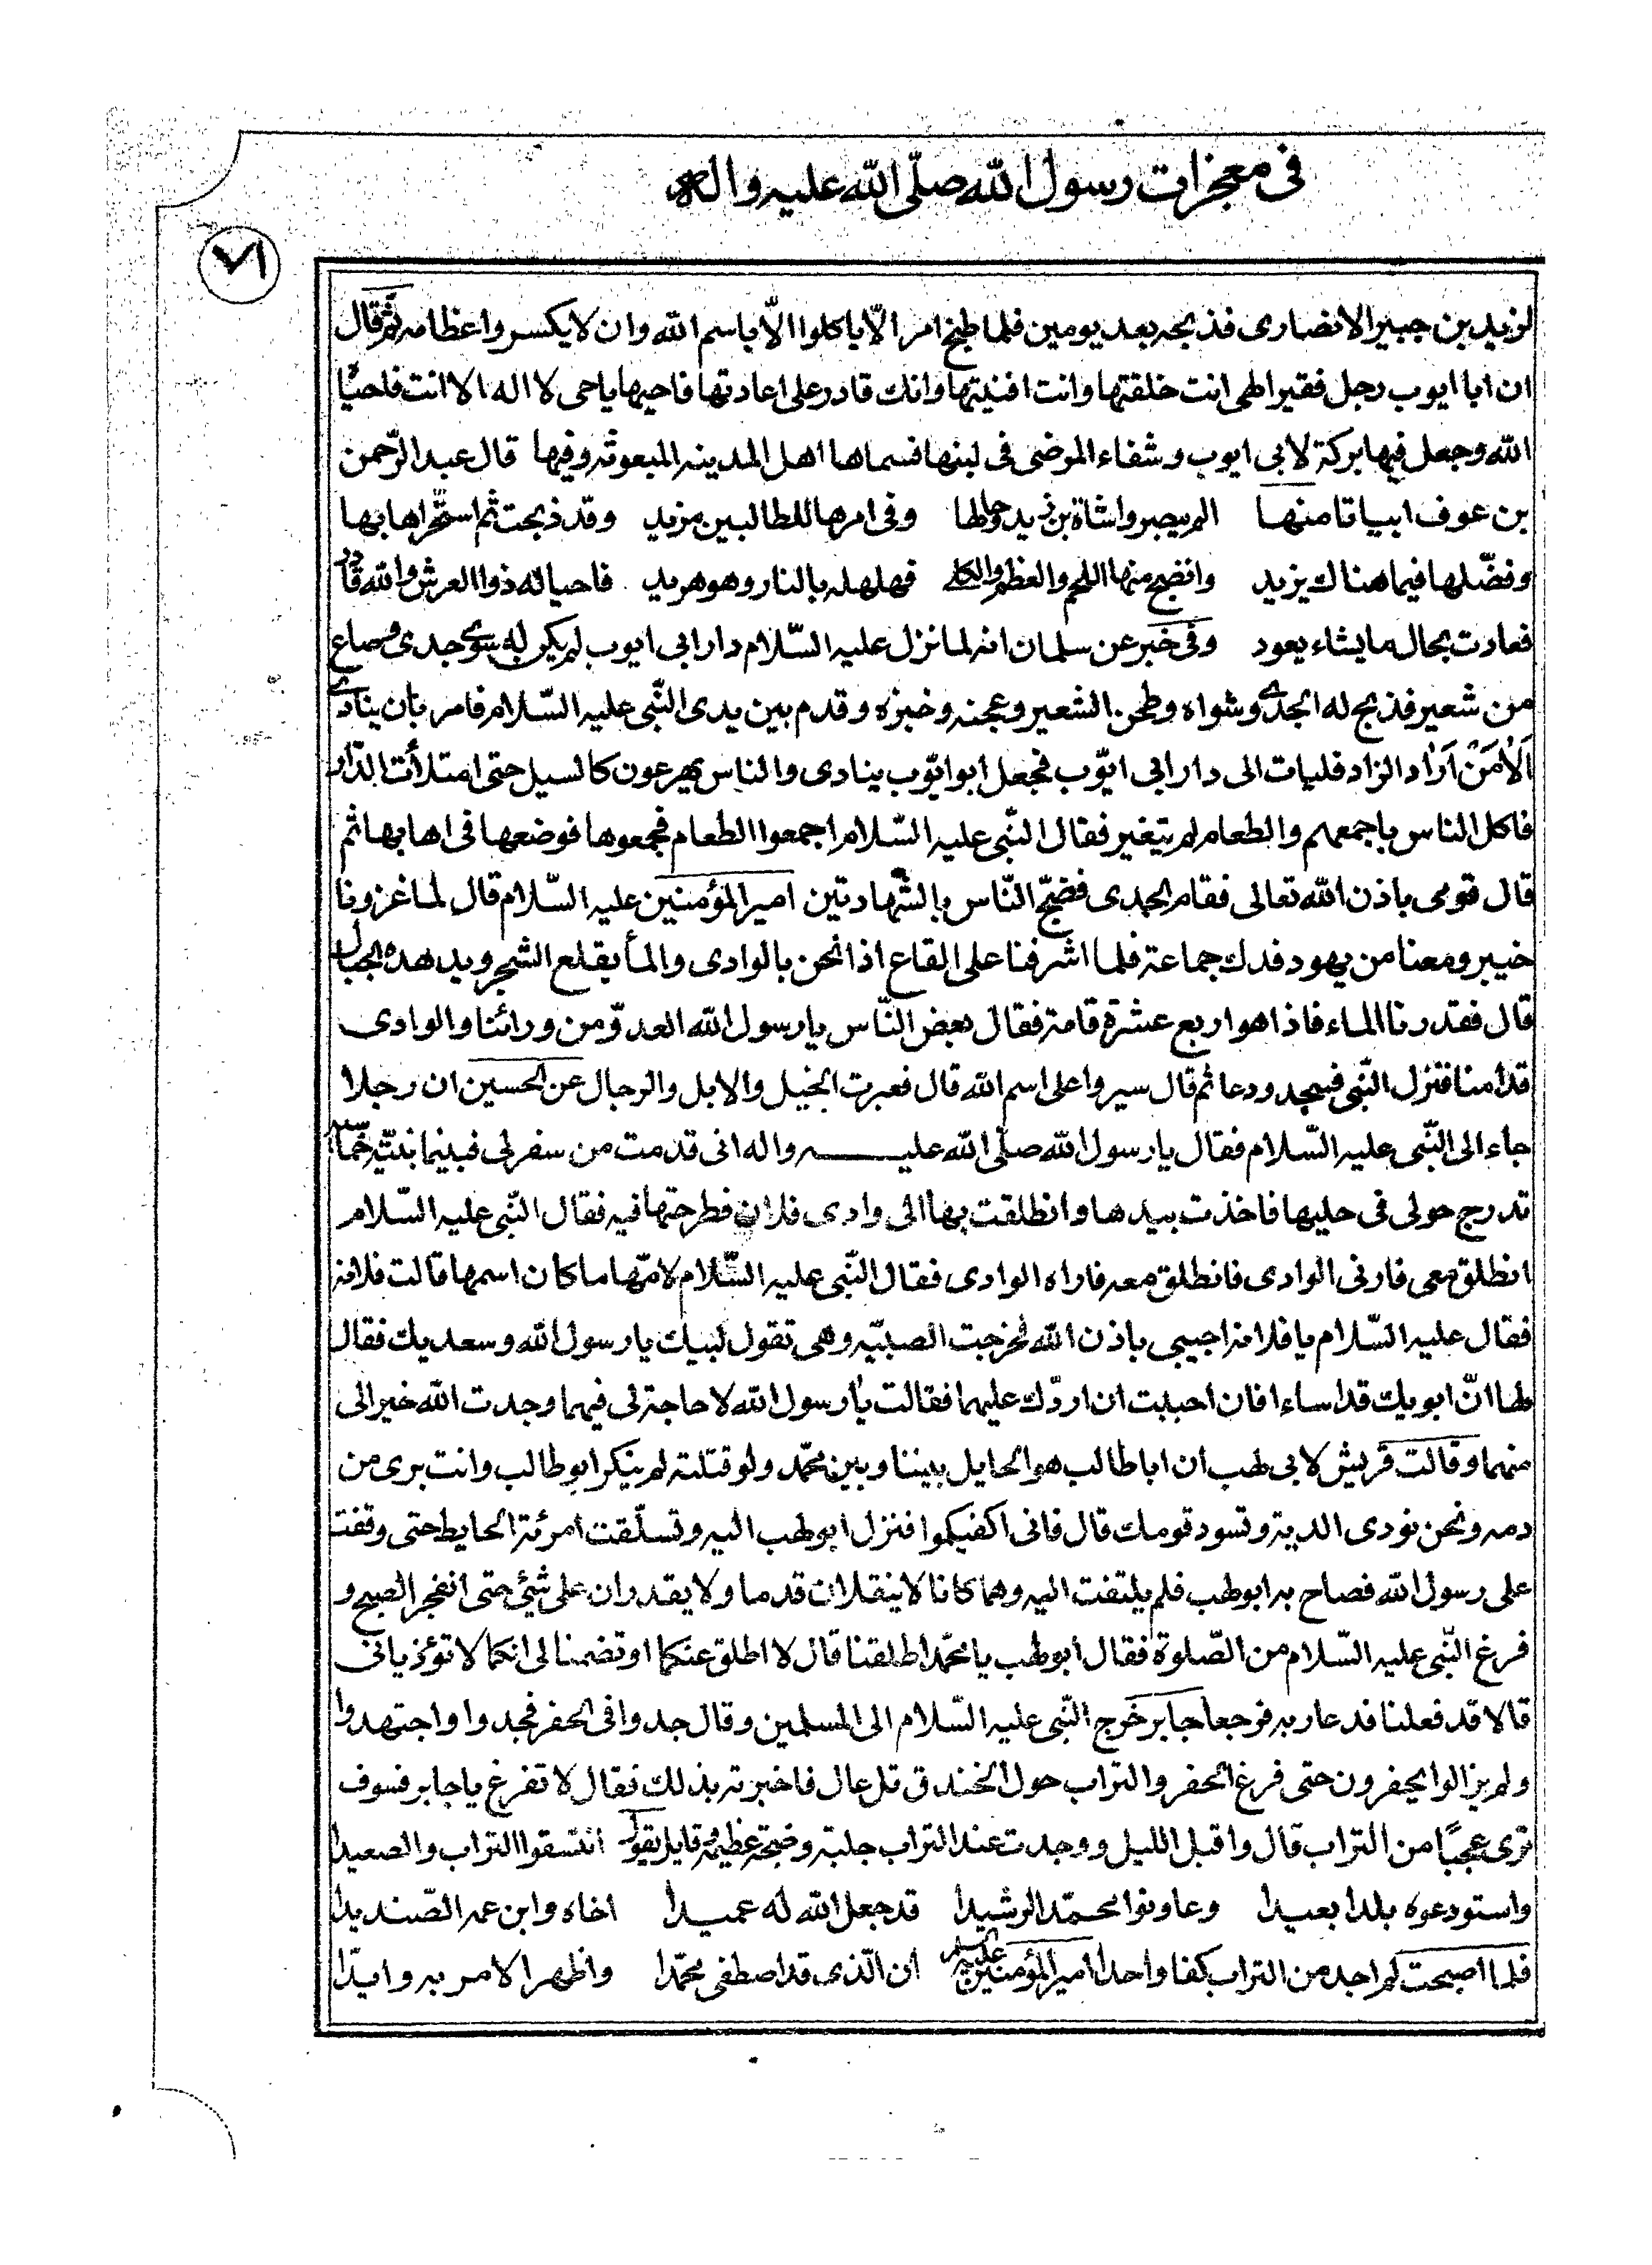 فى معجزات رسول الله صلّى الله عليه واله
٧١
لزيد بن جبير الانصارى فذبحه بعد يومين فلما طبخ امر الّا ياكلوا الّا باسم الله وان لا يكسروا عظامه ثم قال
ان ابا ايوب رجل فقير الهى انت خلقتها وانت افنيتها وانك قادر على اعادتها فاحيها ياحى لا اله الا انت فاحيّا
الله وجعل فيها بركة لابى ايوب وشفاء المرضى فى لبنها فسماها اهل المدينه المبعوثه وفيها قال عبد الرّحمن
بن عوف ابياتا منها الم يبصروا شاة بن زيد وحالها وفى امرها للطالبين مزيد وقد ذبحت ثم استجرّ اهابها
وفضّلها فيما هناك يزيد وانضج منها اللحم والعظم والكلى فهلهله بالنار وهو هريد فاحيا له ذوا العرش والله قادر
فعادت بحال ما يشاء يعود وفى خبر عن سلمان انه لما نزل عليه السّلام دار ابى ايوب لم يكن له سوى جدى وصاع
من شعير فذبح له الجدى وشواه وطحن الشعير وعجنه وخبزه وقدم بين يدى النّبى عليه السّلام فامر بان ينادى
اَلاٰ مَنْ اَرٰاد الزاد فليات الى دار ابى ايّوب فجعل ابو ايّوب ينادى والناس يهرعون كالسيل حتى امتلأت الدّار
فاكل الناس باجمعهم والطعام لم يتغير فقال النّبى عليه السّلام اجمعوا الطعام فجمعوها فوضعها فى اهابها ثم
قال قومى باذن الله تعالى فقام الجدى فضجّ النّاس بالشّهادتين امير المؤمنين عليه السّلام قال لما غزونا
خيبر ومعنا من يهود فدك جماعة فلما اشرفنا على القاع اذا نحن بالوادى والمأ يقلع الشجر ويدهده الجبال
قال فقدرنا الماء فاذا هو اربع عشرة قامة فقال بعض النّاس يا رسول الله العدوّ من ورائنا والوادى
قدامنا فنزل النّبى فسجد ودعا ثم قال سيروا على اسم الله قال فعبرت الخيل والابل والرجال عن الحسين ان رجلا
جاء الى النّبى عليه السّلام فقال يا رسول الله صلّى الله عليه واله انى قدمت من سفر لى فبينما بنيّة خماسية
تدرج حولى فى حليها فاخذت بيدها وانطلقت بها الى وادى فلان فطرحتها فيه فقال النّبى عليه السّلام
انطلق معى فارنى الوادى فانطلق معه فاراه الوادى فقال النّبى عليه السّلام لامّها ما كان اسمها قالت فلانة
فقال عليه السّلام يا فلانة اجيبى باذن الله فخرجت الصبيّه وهى تقول لبيك يا رسول الله وسعديك فقال
لها انّ ابويك قد اساءا فان احببت ان اردّك عليهما فقالت يا رسول الله لا حاجة لى فيهما وجدت الله خير الى
منهما وقالت قريش لابى لهب ان ابا طالب هو الحايل بيننا وبين محمّد ولو قتلته لم ينكر ابو طالب وانت برى من
دمه ونحن نودى الدية وتسود قومك قال فانى اكفيكموا فنزل ابو لهب اليه وتسلّقت امرئة الحايط حتى وقفت
على رسول الله فصاح به ابو لهب فلم يلتفت اليه وهما كانا لا ينقلان قدما ولا يقدران على شيئ حتى انفجر الصبح و
فرغ النّبى عليه السّلام من الصّلوة فقال ابو لهب يا محمّد اطلقنا قال لا اطلق عنكما او تضمنا لى انكما لا تؤذيانى
قالا قد فعلنا فدعا ربه فرجعا جابر خرج النّبى عليه السّلام الى المسلمين وقال جدوا فى الحفر فجدوا واجتهدوا
ولم يزالوا يحفرون حتى فرغ الحفر والتراب حول الخندق تل عال فاخبرته بذلك فقال لا تفزع يا جابر فسوف
ترى عجبًا من التراب قال واقبل الليل ووجدت عند التراب جلبة وضجة عظيمة وقايل يقول انتسفوا التراب والصعيدا
واستودعوه بلدا بعيدا وعاونوا محمّد الرشيدا قد جعل الله له عميدا اخاه وابن عمه الصّنديدا
فلما اصبحت لم اجد من التراب كفا واحدا امير المؤمنين عليه السلم ان الّذى قد اصطفى محمّدا واظهر الامر به وايدّا